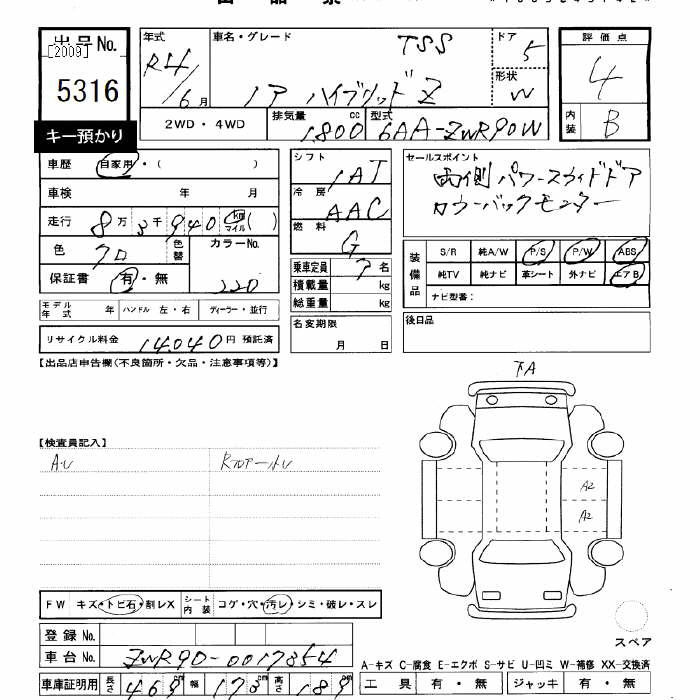 出品票
出品 No.
[2009]
5316
キー預かり
年式 R4/6月
車名・グレード TSS
ノア ハイブリッド Z
ドア 5
形状 W
2WD・4WD
排気量 1,800 cc
型式 6AA-ZWR90W
評価点 4
内装 B
車歴 自家用・( )
車検 年 月
走行 8万3千940 km マイル ( )
色 クロ
色替
カラーNo. 220
保証書 有・無
シフト IAT
冷房 AAC
燃料 G
乗車定員 7名
積載量 kg
総重量 kg
名変期限 月 日
セールスポイント
両側パワースライドドア
装備品 S/R 純A/W P/S P/W ABS
純TV 純ナビ 革シート 外ナビ エアB
ナビ型番:
後日品
モデル年式 年 ハンドル 左・右 ディーラー・並行
リサイクル料金 14,040円 預託済
【出品店申告欄(不良箇所・欠品・注意事項等)】
下A
【検査員記入】
A・U
A2
A2
FW キズ・トビ石・割レX シート内装 コゲ・穴・汚レ・シミ・破レ・スレ
スペア
登録 No.
車台 No. ZWR90-0017854
A-キズ C-腐食 E-エクボ S-サビ U-凹ミ W-補修 XX-交換済
車庫証明用 長さ 469 幅 173cm 高さ 189
工具 有・無 ジャッキ 有・無